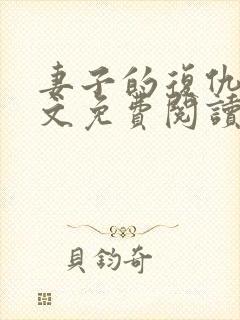 妻子的復仇
文免費閱讀
貝鈞奇